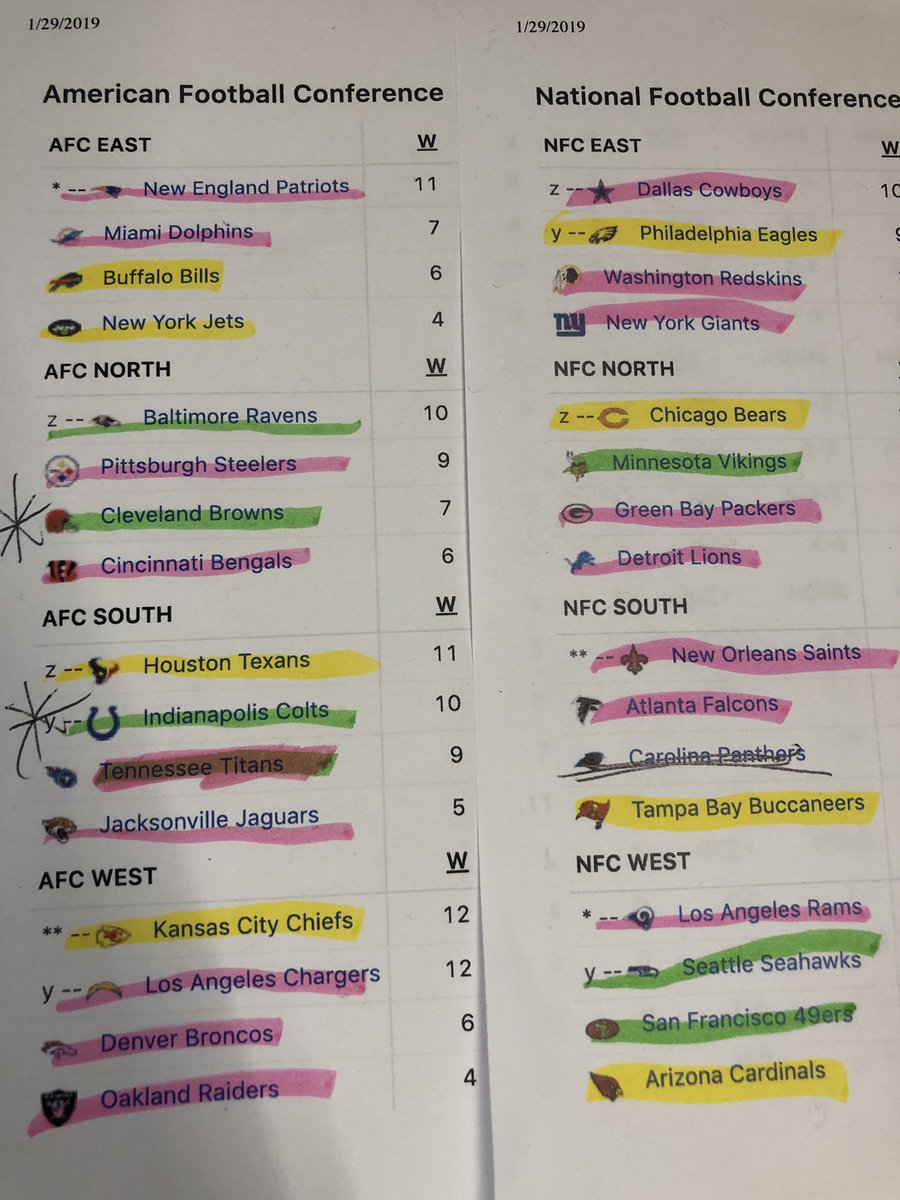 1/29/2019
American Football Conference
AFC EAST W
* -- New England Patriots 11
Miami Dolphins 7
Buffalo Bills 6
New York Jets 4
AFC NORTH W
z -- Baltimore Ravens 10
Pittsburgh Steelers 9
Cleveland Browns 7
Cincinnati Bengals 6
AFC SOUTH W
z -- Houston Texans 11
y -- Indianapolis Colts 10
Tennessee Titans 9
Jacksonville Jaguars 5
AFC WEST W
** -- Kansas City Chiefs 12
y -- Los Angeles Chargers 12
Denver Broncos 6
Oakland Raiders 4
1/29/2019
National Football Conference
NFC EAST W
z -- Dallas Cowboys 10
y -- Philadelphia Eagles
Washington Redskins
ny New York Giants
NFC NORTH
z -- Chicago Bears
Minnesota Vikings
Green Bay Packers
Detroit Lions
NFC SOUTH
** -- New Orleans Saints
Atlanta Falcons
Carolina Panthers
Tampa Bay Buccaneers
NFC WEST
* -- Los Angeles Rams
y -- Seattle Seahawks
San Francisco 49ers
Arizona Cardinals